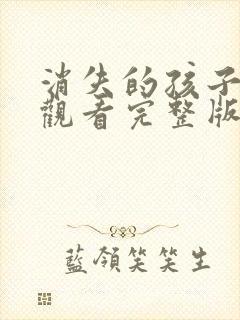 消失的孩子
觀看完整版
藍領笑笑生